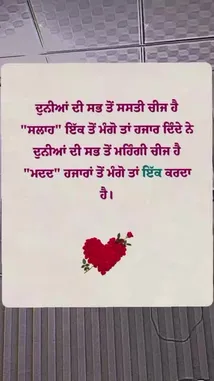 ਦੁਨੀਆਂ ਦੀ ਸਭ ਤੋਂ ਸਸਤੀ ਚੀਜ ਹੈ
"ਸਲਾਹ" ਇੱਕ ਤੋਂ ਮੰਗੋ ਤਾਂ ਹਜਾਰ ਦਿੰਦੇ ਨੇ
ਦੁਨੀਆਂ ਦੀ ਸਭ ਤੋਂ ਮਹਿੰਗੀ ਚੀਜ ਹੈ
"ਮਦਦ" ਹਜਾਰਾਂ ਤੋਂ ਮੰਗੋ ਤਾਂ ਇੱਕ ਕਰਦਾ
ਹੈ।